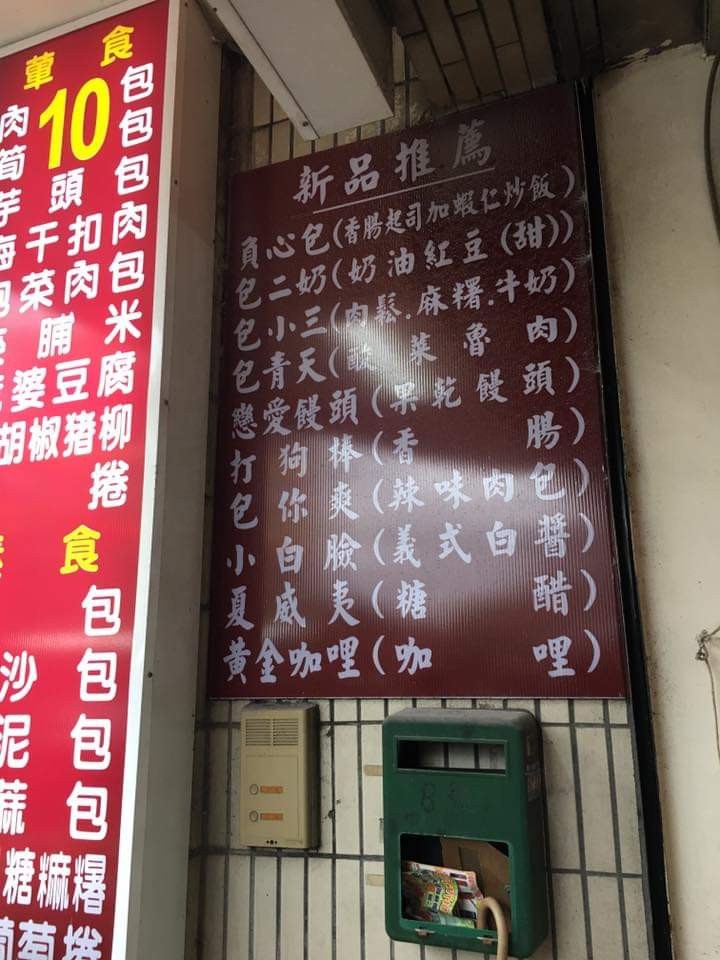 葷食
10
肉包
筍包
芋頭包
干扣肉
菜肉包
脯米
婆豆腐
胡椒豬柳
捲
食
包
沙包
泥包
蔴包
糖麻糬
葡萄捲
新品推薦
負心包(香腸起司加蝦仁炒飯)
包二奶(奶油紅豆(甜))
包小三(肉鬆.麻糬.牛奶)
包青天(酸菜魯肉)
戀愛饅頭(果乾饅頭)
打狗棒(香腸)
包你爽(辣味肉包)
小白臉(義式白醬)
夏威夷(糖醋)
黃金咖哩(咖哩)